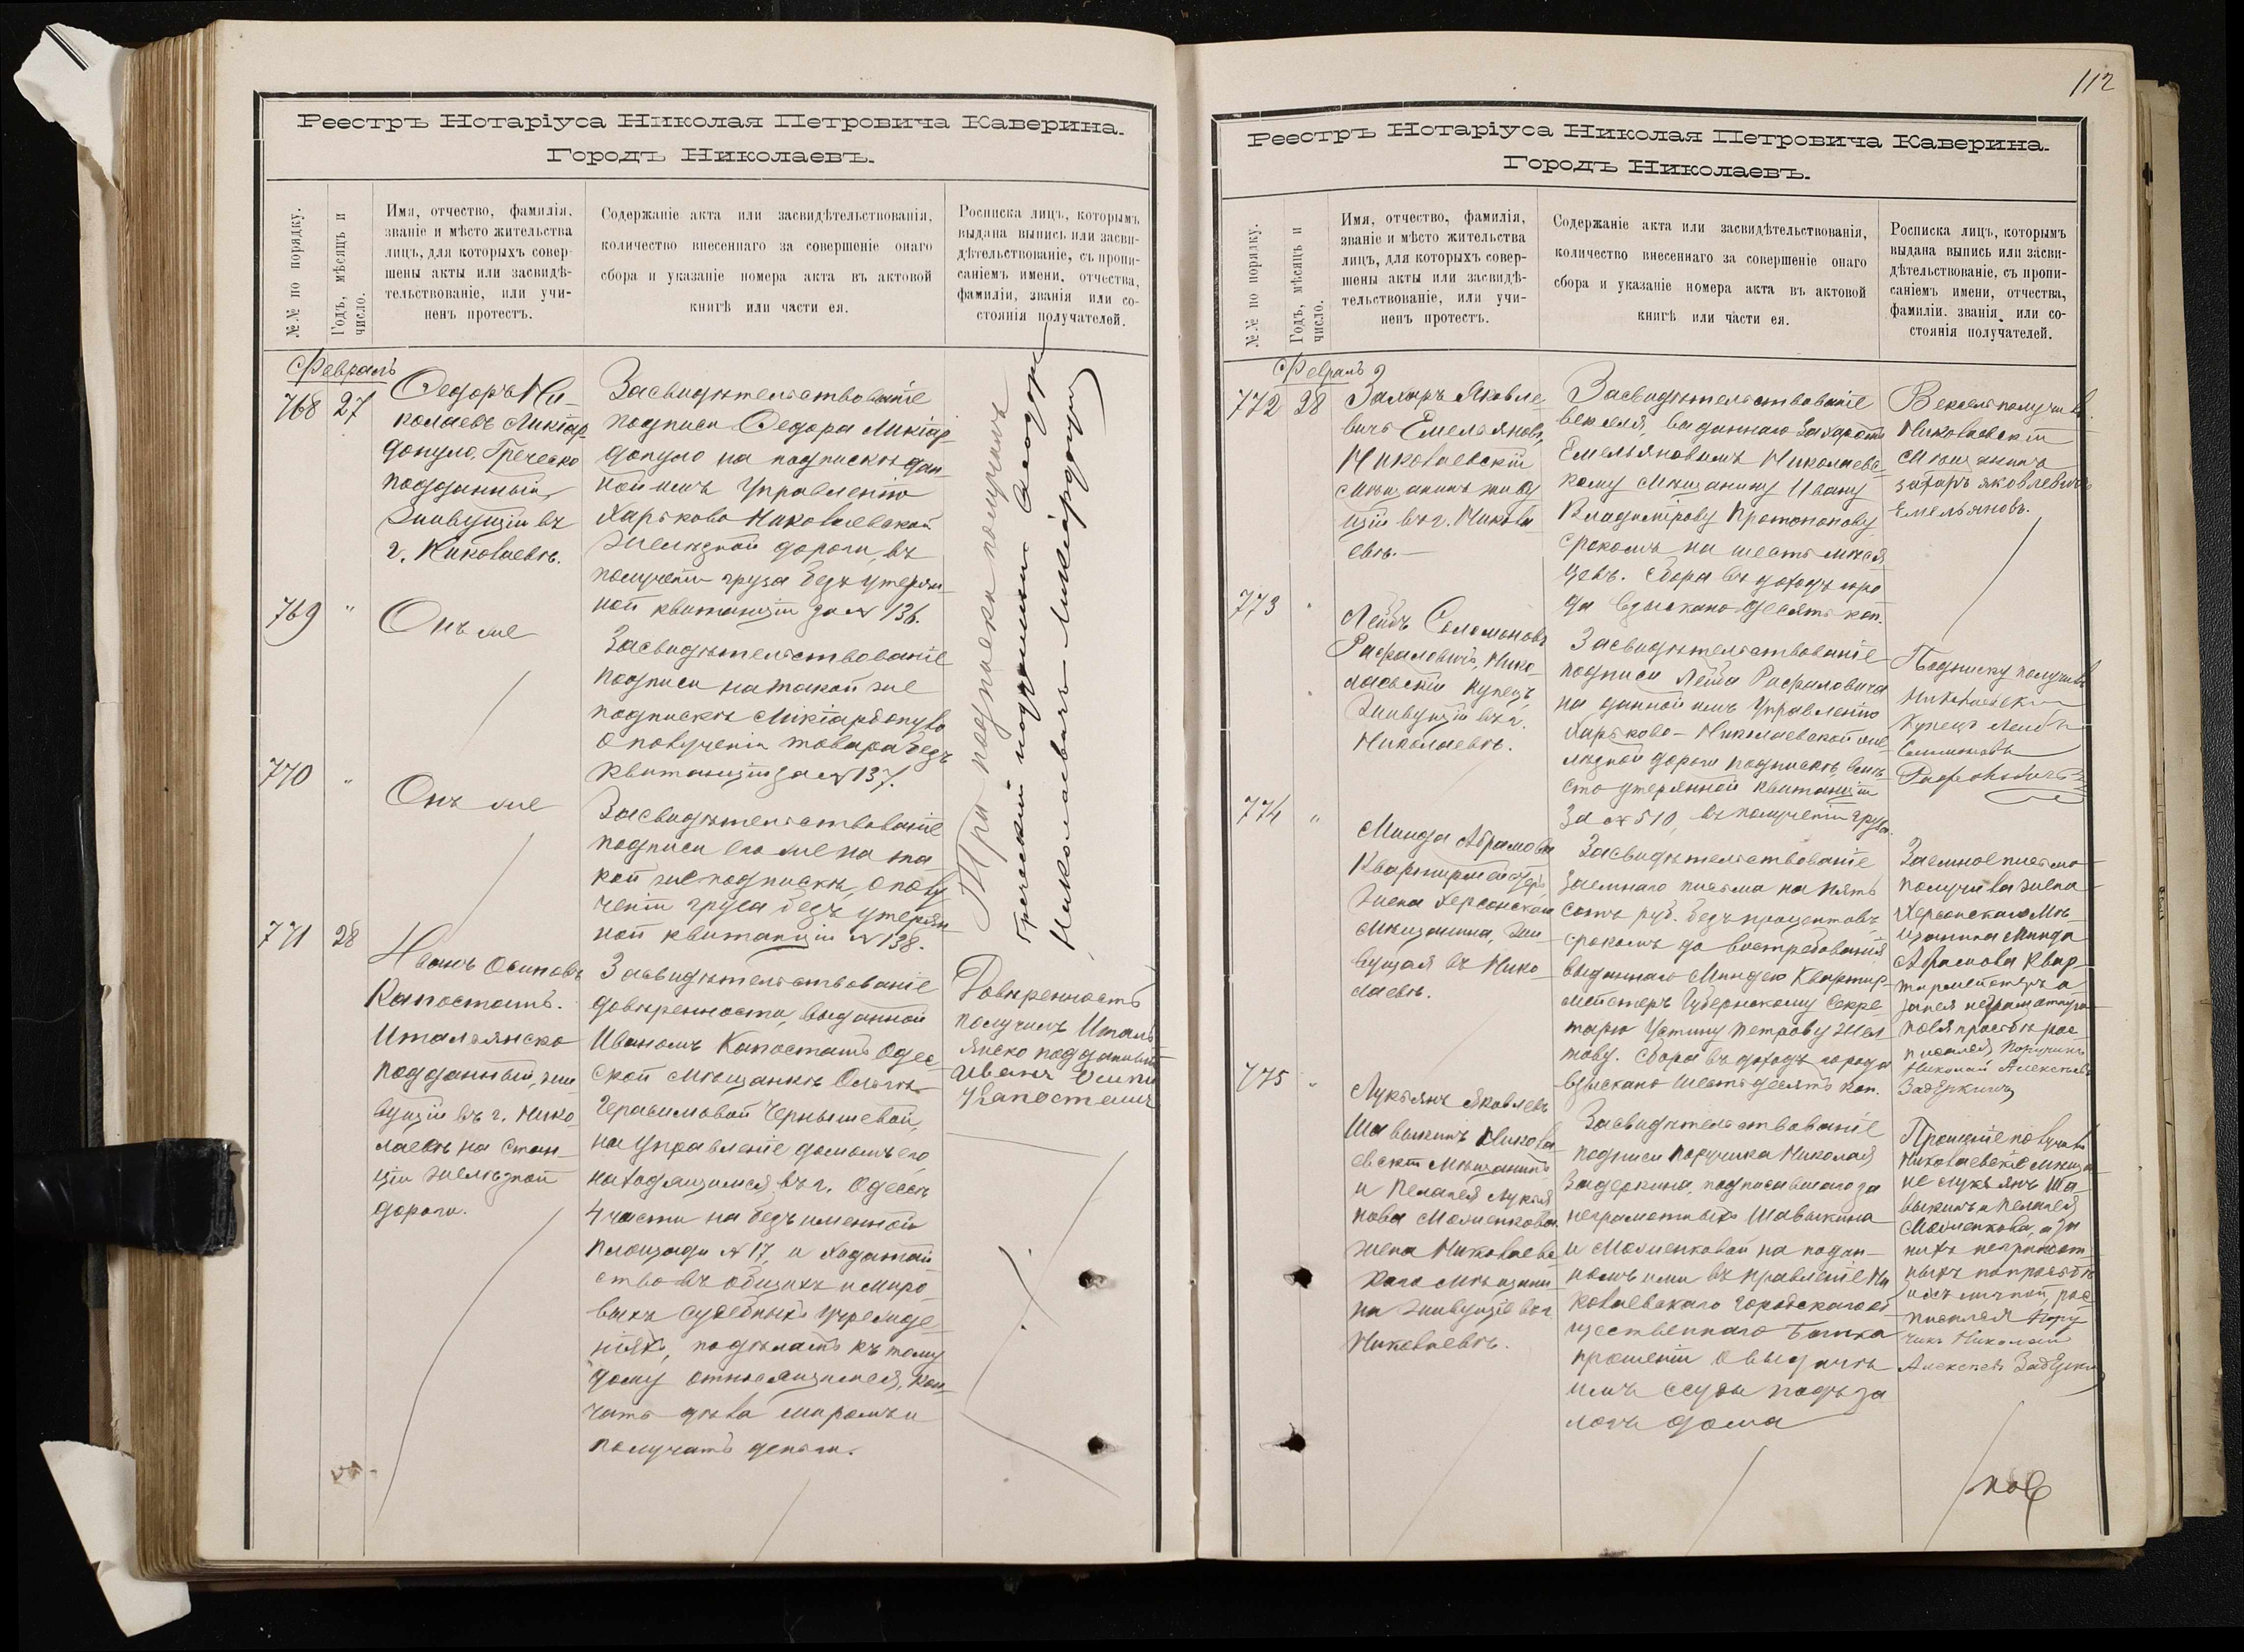 Реестръ Нотаріуса Николая Петровича Каверина.
Городъ Николаевъ.
№.№ по порядку.
Годъ, мѣсяцъ и
число.
Имя, отчество, фамилія,
званіе и мѣсто жительства
лицъ, для которыхъ совер-
шены акты или засвидѣ-
тельствованіе, или учи-
ненъ протестъ.
Содержаніе акта или засвидѣтельствованія,
количество внесеннаго за совершеніе онаго
сбора и указаніе номера акта въ актовой
книгѣ или части ея.
Росписка лицъ, которымъ
выдана выпись или засви-
дѣтельствованіе, съ пропи-
саніемъ имени, отчества,
фамиліи, званія или со-
стоянія получателей.
Февраль
768 27
Ѳедоръ Ни-
колаевъ Микіар-
допуло, Греческо
подданный,
Живущій въ
г. Николаевѣ.
Засвидѣтельствованіе
подписи Ѳедора Микіар-
допуло на подпискѣ дан-
ной имъ Управленію
Харьково Николаевской
Желѣзной дороги, въ
полученіи груза безъ утерян-
ной квитанціи за № 136.
769 "
Онъ же
Засвидѣтельствованіе
подписи на такой же
подпискѣ Микіардопуло
о полученіи товара безъ
квитанціи за № 137.
770 "
Онъ же
Засвидѣтельствованіе
подписи его же на та
кой же подпискѣ, о полу
ченіи груза безъ утерян-
ной квитанціи № 138.
Три подписки получилъ
Греческій подданный Ѳеодоръ
Николаевичъ Микіардопуло
771 28
Иванъ Осиповъ
Капостатъ.
Итальянско
подданный, жи
вущій въ г. Нико
лаевѣ на Стан-
ціи желѣзной
дороги.
Засвидѣтельствованіе
довѣренности, выданной
Иваномъ Капостатъ Одес
ской мѣщанкѣ Ольгѣ
Герасимовой Чернышевой,
на управленіе домомъ его,
находящимся въ г. Одессѣ
4 части на безъименной
площади № 17, и ходатай
ство въ общихъ и миро-
выхъ судебныхъ учрежде-
ніяхъ, по дѣламъ къ тому
дому относящимся, кон-
чать дѣла миромъ и
получать деньги.
Довѣренность
получилъ Италь
янско подданный
Иванъ Осипъ
Капостатъ
112
Реестръ Нотаріуса Николая Петровича Каверина.
Городъ Николаевъ.
№.№ по порядку.
Годъ, мѣсяцъ и
число.
Имя, отчество, фамилія,
званіе и мѣсто жительства
лицъ, для которыхъ совер-
шены акты или засвидѣ-
тельствованіе, или учи-
ненъ протестъ.
Содержаніе акта или засвидѣтельствованія,
количество внесеннаго за совершеніе онаго
сбора и указаніе номера акта въ актовой
книгѣ или части ея.
Росписка лицъ, которымъ
выдана выпись или засви-
дѣтельствованіе, съ пропи-
саніемъ имени, отчества,
фамиліи. званія или со-
стоянія получателей.
Февраль
772 28
Захаръ Яковле
вичъ Емельяновъ,
Николаевскій
мѣщанинъ живу
щій въ г. Никола
евѣ.
Засвидѣтельствованіе
векселя, выданнаго Захаромъ
Емельяновымъ Николаевс-
кому мѣщанину Ивану
Владимірову Протопопову,
срокомъ на шесть мѣся
цевъ. Сбора въ доходъ горо
да взыскано десять коп.
Вексель получилъ
Николаевскій
Мѣщанинъ
захаръ яковлевичъ
Емельяновъ.
773 "
Лейбъ Соломоновъ
Рафаловичъ, Нико-
лаевскій купецъ,
Живущій въ г.
Николаевѣ.
Засвидѣтельствованіе
подписи Лейба Рафаловича
на данной имъ Управленію
Харьково-Николаевской же-
лѣзной дороги подпискѣ, вмѣ-
сто утерянной квитанціи
за № 510, въ полученіи груза.
Подписку получилъ
Николаевскій
Купецъ Лейбъ
Соломоновъ
Рафаловичъ
774 "
Минда Абрамова
Квартирмейстеръ
Жена Херсонскаго
мѣщанина, жи-
вущая въ Нико-
лаевѣ.
Засвидѣтельствованіе
заемнаго письма на пять
сотъ руб. безъ процентовъ,
срокомъ до востребованія
выданнаго Миндею Квартир-
мейстеръ Губернскому Секре-
тарю Устину Петрову Жел
тову. Сбора въ доходъ города
взыскано шестьдесятъ коп.
Заемное письмо
получила жена
Херсонскаго Мѣ-
щанина Минда
Абрамова Квар-
тирмейстеръ а
за нея неграмотную
по ея просьбѣ рос
писался Поручикъ
Николай Алексѣевъ
Задеркинъ
775 "
Лукьянъ Яковлевъ
Шавыкинъ Никола
евскій мѣщанинъ
и Пелагея Лукья
нова Моженкова,
жена Николаевс
каго мѣщани
на Живущіе въ г.
Николаевѣ.
Засвидѣтельствованіе
подписи Поручика Николая
Задеркина, подписавшаго за
неграмотныхъ Шавыкина
и Моженковой на подан-
номъ ими въ правленіе Ни
колаевскаго городскаго об
щественнаго Банка
прошеніи о выдачѣ
имъ ссуды подъ за
логъ дома
Прошеніе получили
Николаевскіе мѣща
не Лукьянъ Ша-
выкинъ и Пелагея
Моженкова, а за
нихъ неграмот-
ныхъ по просьбѣ
ихъ личной рос
писался Пору
чикъ Николай
Алексѣевъ Задеркинъ